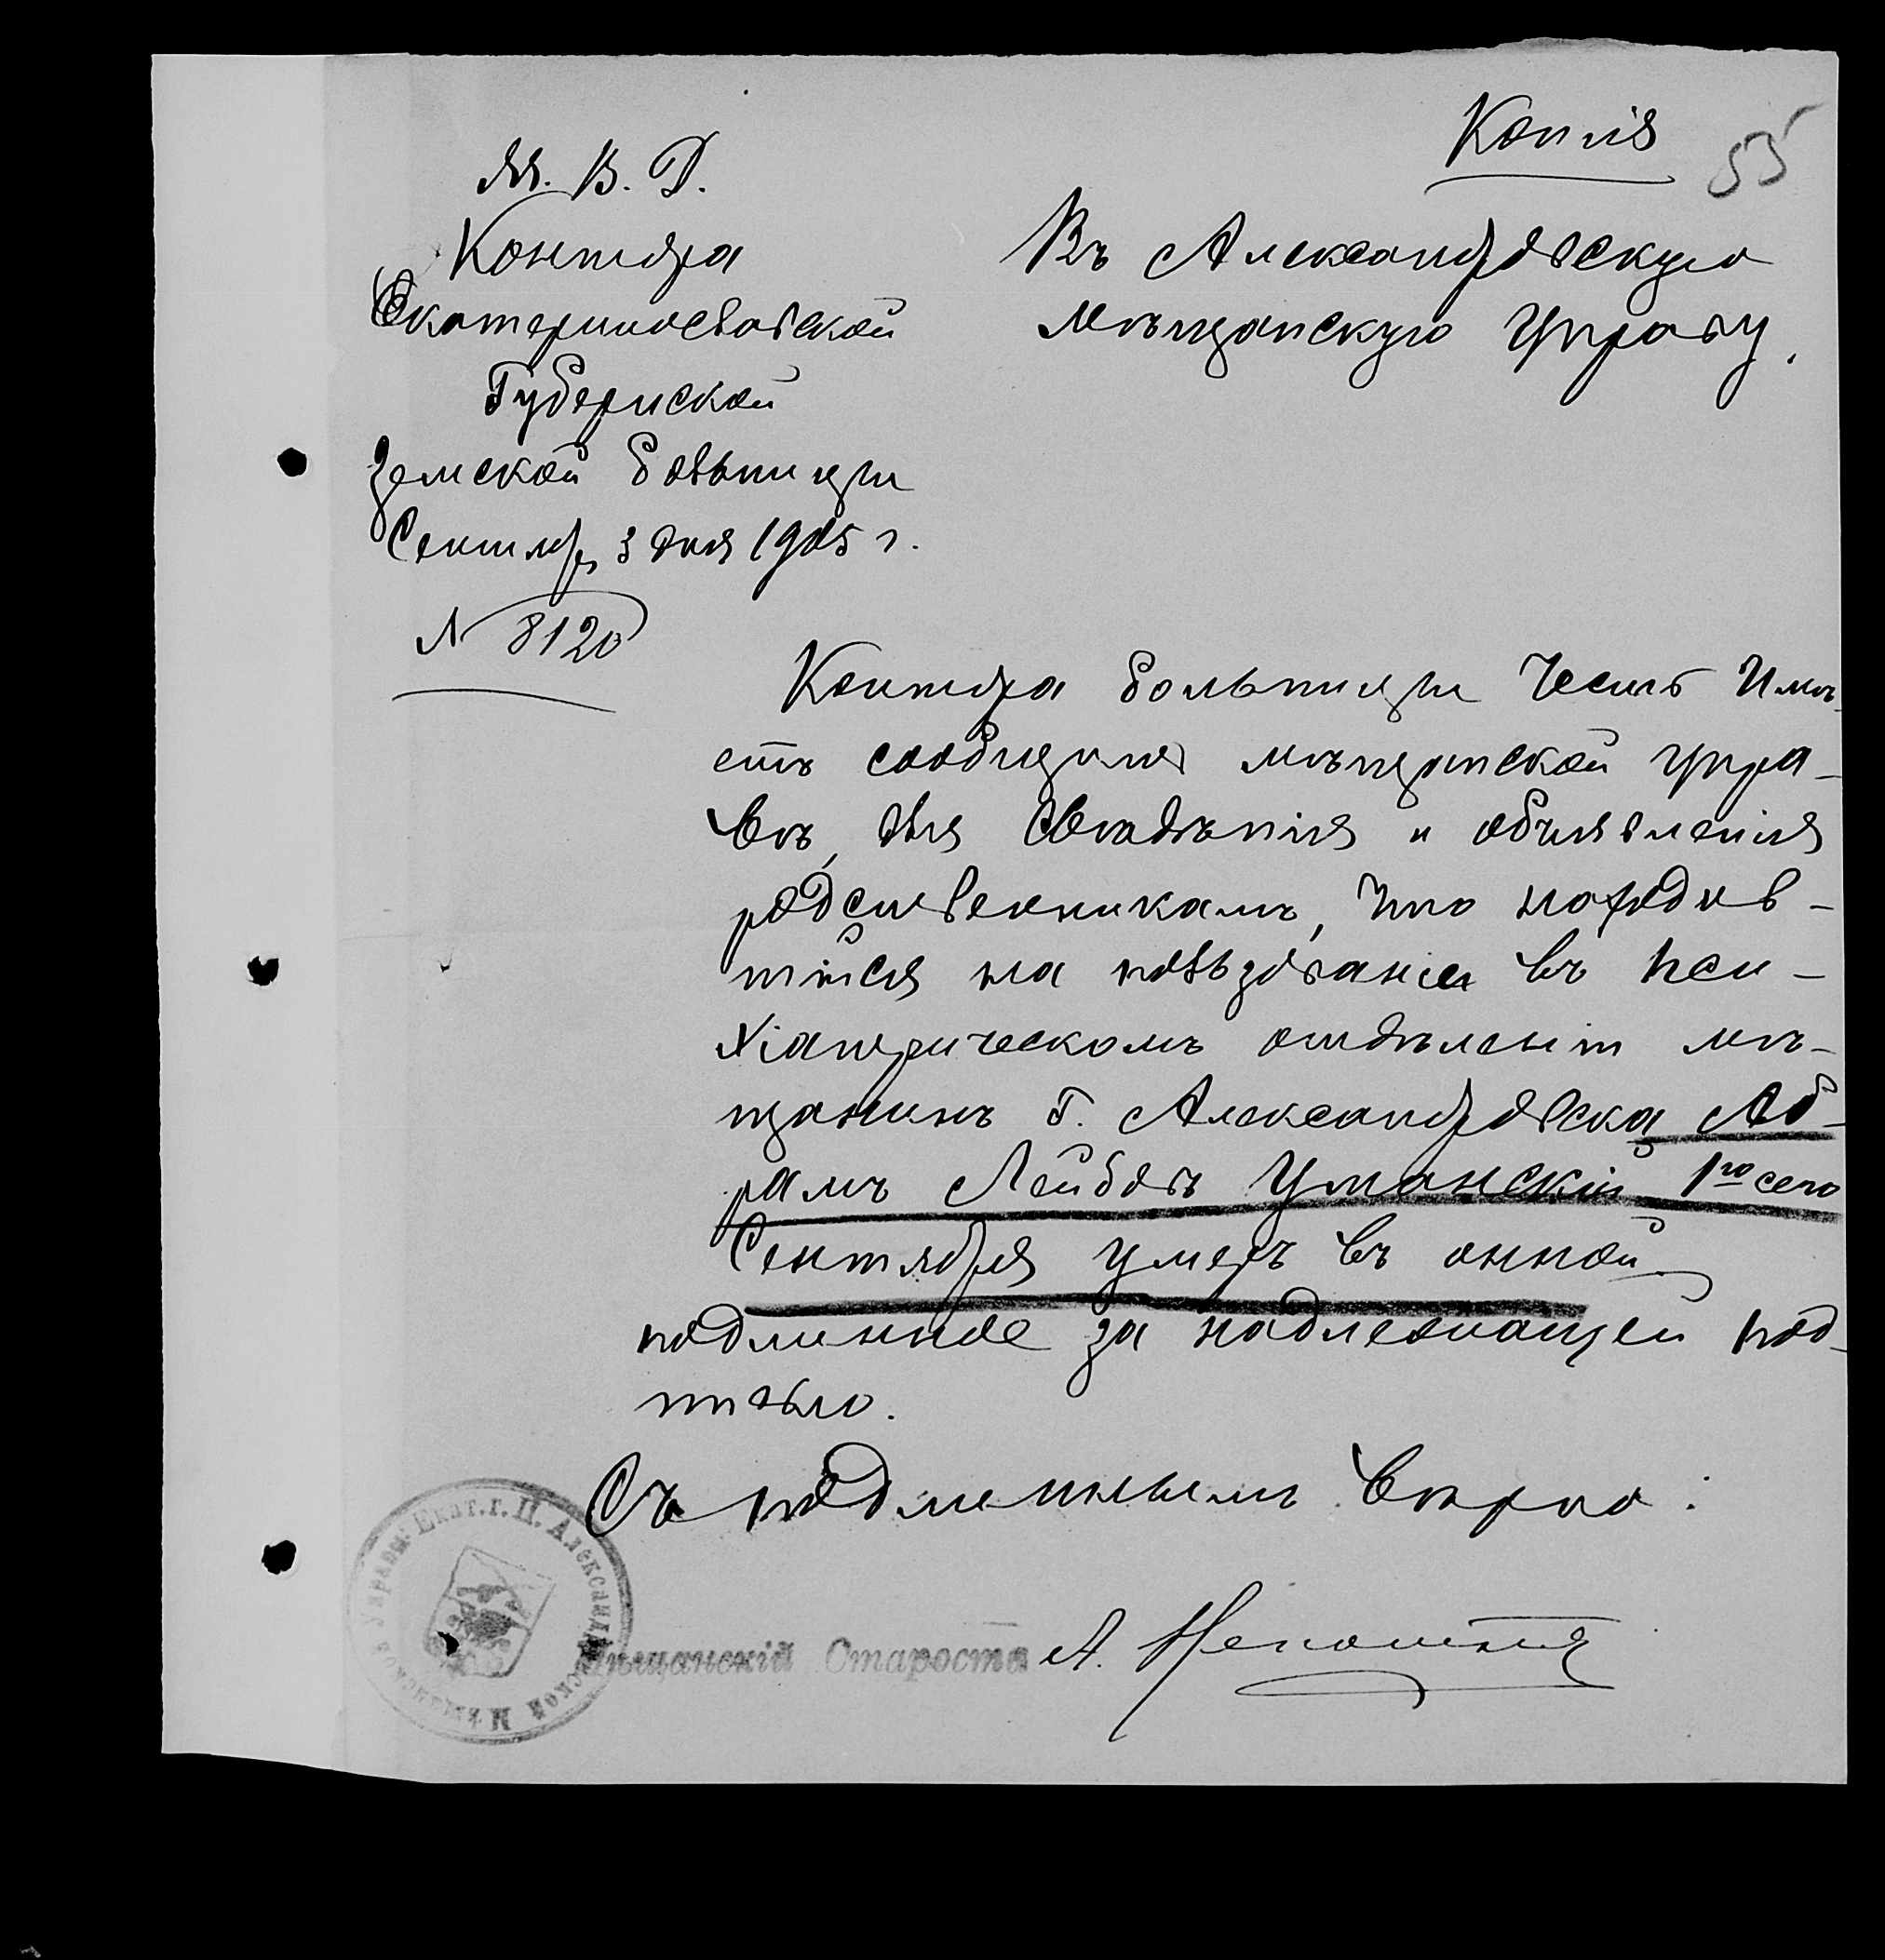 Копія
55
М. В. Д.
Контора
Екатеринославской
Губернской
Земской больницы
Сентябр. 3 дня 1905 г.
N 8120
Въ Александровскую
мѣщанскую управу.
Контора больницы Честь Имѣ-
етъ сообщить мѣщанской упра-
вѣ, для свѣдѣнія и объявленія
родственникамъ, что находив-
шійся на пользованіи въ пси-
хіатрическомъ отдѣленіи мѣ-
щанинъ г. Александровска Аб-
рамъ Лейбовъ Уманскій 1го сего
Сентября умеръ въ онной
подлинное за надлежащей под-
писью.
Съ подлиннымъ вѣрно:
Мѣщанскій Староста А.
Мѣщанской Управы Екат. г. П. Александровской